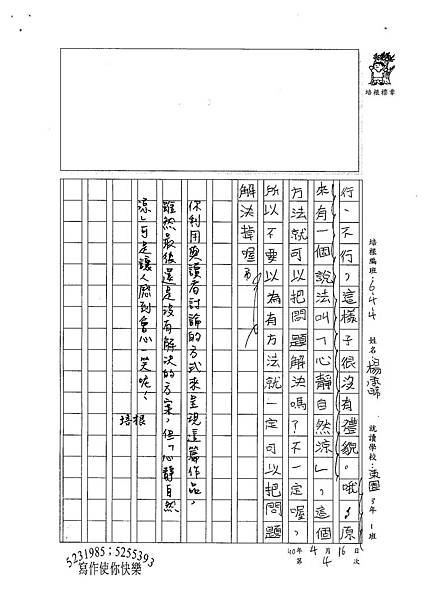 培根標章
培根編班：644 姓名 楊 就讀學校：東園 3年1班
40年4月16日
第4次
行、不行，這樣子很沒有禮貌。哦！原
來有一個說法叫「心靜自然涼」，這個
方法就可以把問題解決嗎？不一定喔，
所以不要以為有方法就一定可以把問題
解決掉喔！
你利用與讀者討論的方式來呈現這篇作品，
雖然最後還是沒有解決的方案，但「心靜自然
涼」可是讓人感到會心一笑呢！
培根
5231985；5255393
寫作使你快樂